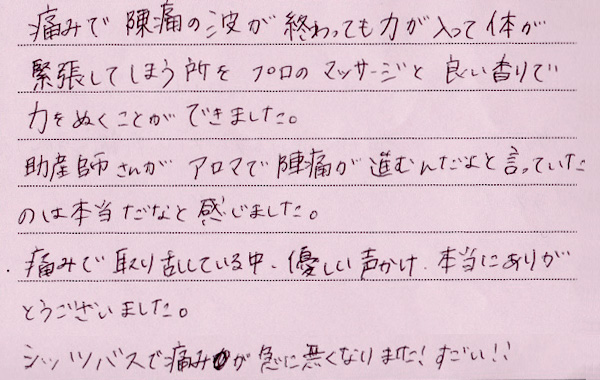 痛みで 陣痛の波が 終わっても力が入って 体が
緊張してしまう所を プロの マッサージと 良い香りで
力をぬくことが できました。
助産師さんが アロマで陣痛が 進むんだよと言っていた
のは本当だなと 感じました。
痛みで 取り乱している中、優しい声かけ、本当にありが
とうございました。
シッツバスで痛みが 急に無くなりました！すごい！！